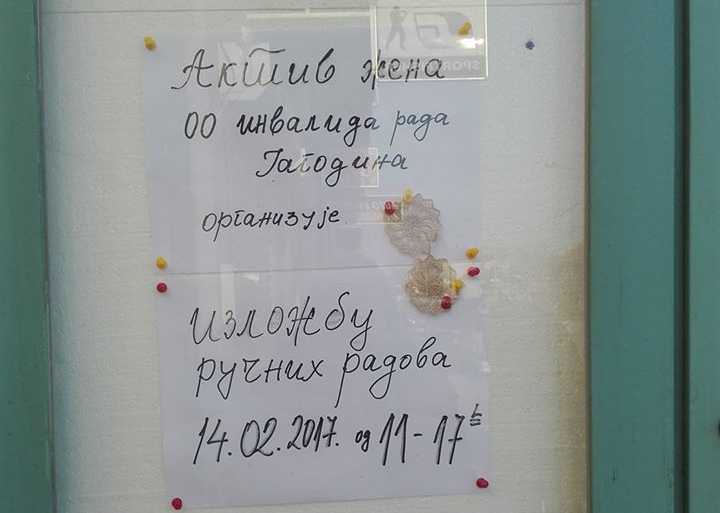 Актив жена
ОО инвалида рада
Јагодина
организује
изложбу
ручних радова
14.02.2017. од 11-17 h